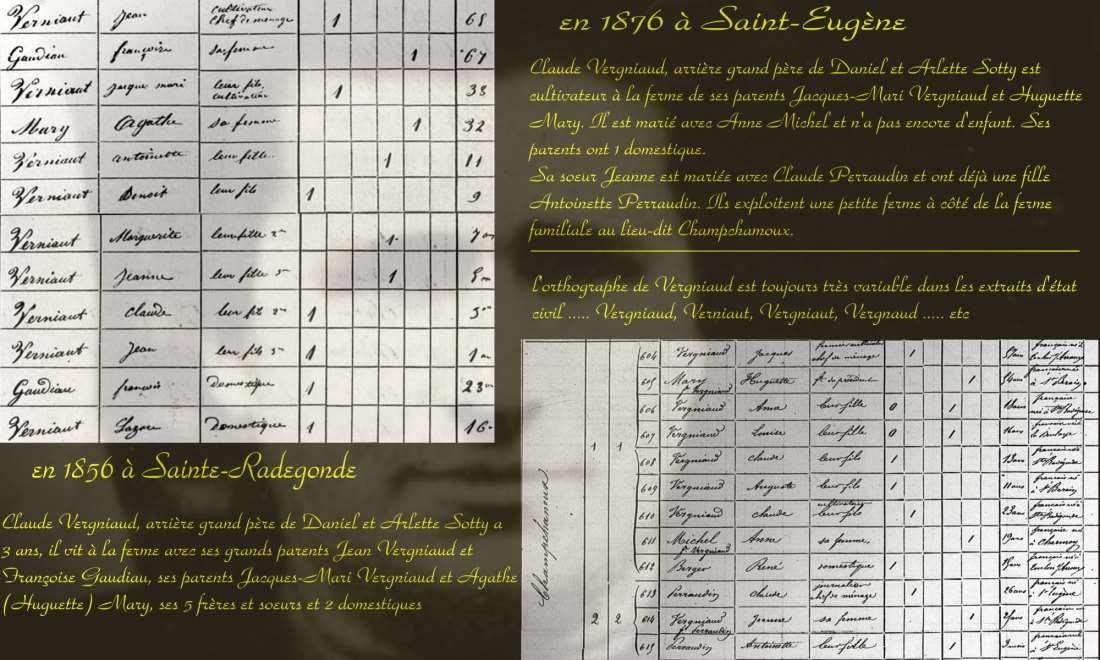 Verniaut Jean cultivateur chef de menage 1 68
Gaudiau françoise sa femme 1 67
Verniaut jacque mari leur fils, cultivateur 1 38
Mary Agathe sa femme 1 32
Verniaut antoinette leur fille 1 11
Verniaut Benoit leur fils 1 9
Verniaut Marguerite leur fille 1 7
Verniaut Jeanne leur fille 1
Verniaut claude leur fils 1
Verniaut Jean leur fils 1 1
Gaudiau francois Domestique 1 23
Verniaut Lazare Domestique 1 16
en 1856 à Sainte-Radegonde
Claude Vergniaud, arrière grand père de Daniel et Arlette Sotty a
3 ans, il vit à la ferme avec ses grands parents Jean Vergniaud et
Françoise Gaudiau, ses parents Jacques-Mari Vergniaud et Agathe
(Huguette) Mary, ses 5 frères et soeurs et 2 domestiques
en 1876 à Saint-Eugène
Claude Vergniaud, arrière grand père de Daniel et Arlette Sotty est
cultivateur à la ferme de ses parents Jacques-Mari Vergniaud et Huguette
Mary. Il est marié avec Anne Michel et n'a pas encore d'enfant. Ses
parents ont 1 domestique.
Sa soeur Jeanne est mariée avec Claude Perraudin et ont déjà une fille
Antoinette Perraudin. Ils exploitent une petite ferme à côté de la ferme
familiale au lieu-dit Champchamoux.
l'orthographe de Vergniaud est toujours très variable dans les extraits d'état
civil ..... Vergniaud, Verniaut, Vergniaut, Vergnaud ..... etc
Champchanoux
1 1
604 Vergniaud Jacques chef de ménage 1
605 Mary Huguette 1 54ans
606 Vergniaud Anna leur fille 0 1 18ans
607 Vergniaud Louise leur fille 0 1 16ans
608 Vergniaud claude leur fils 1 13ans
609 Vergniaud Auguste leur fils 1 11ans
610 Vergniaud claude cultivateur leur fils 1 23ans
611 Michel Anne sa femme 1 19ans
612 Berger René domestique 1
2 2
613 Perraudin claude journalier chef de ménage 1 26ans
614 Vergniaud Jeanne sa femme 1
615 Perraudin Antoinette leur fille 1